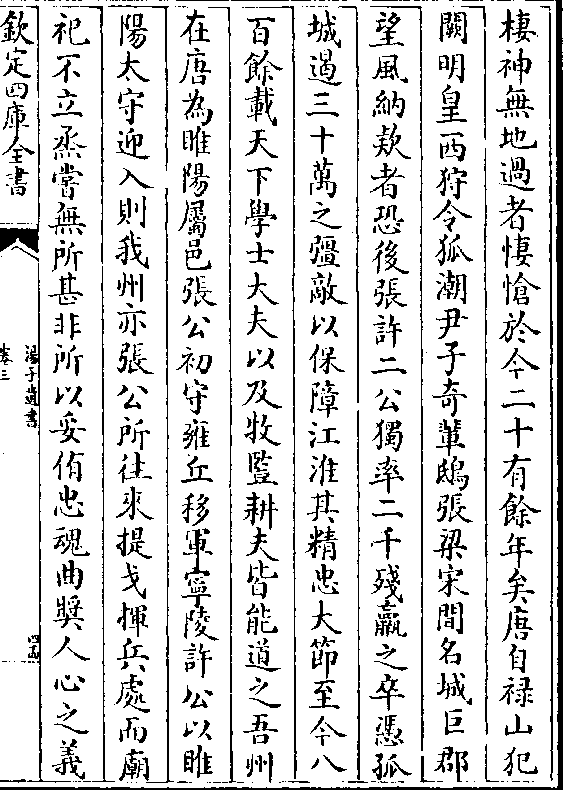 棲神無地過者悽愴於今二十有餘年矣唐自祿山犯
闕明皇西狩令狐潮尹子奇輩鴟張梁宋間名城巨郡
望風納欵者恐後張許二公獨率二千殘羸之卒憑孤
城遏三十萬之彊敵以保障江淮其精忠大節至今八
百餘載天下學士大夫以及牧豎耕夫皆能道之吾州
在唐為睢陽屬邑張公初守雍丘移軍寧陵許公以睢
陽太守迎入則我州亦張公所往來提戈揮兵處而廟
祀不立烝嘗無所甚非所以妥侑忠魂曲奬人心之義
欽定四庫全書
湯子遺書
卷三